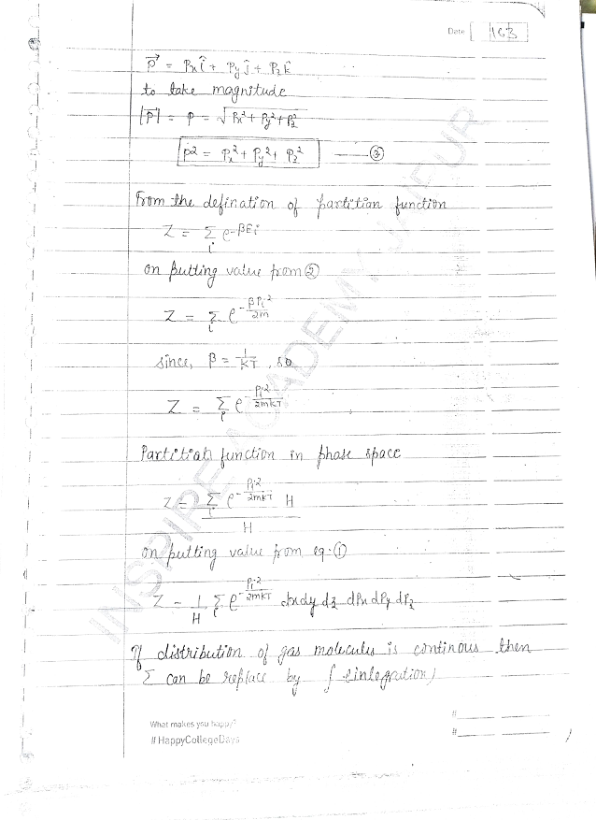 Date 163
$\vec{P} = P_x\hat{i} + P_y\hat{j} + P_z\hat{k}$
to take magnitude
$|\vec{P}| = p = \sqrt{P_x^2 + P_y^2 + P_z^2}$
$p^2 = P_x^2 + P_y^2 + P_z^2$ —— ③
From the defination of partitian function
$Z = \sum_i e^{-\beta E_i}$
on putting value from ②
$Z = \sum_i e^{-\frac{\beta P_i^2}{2m}}$
since, $\beta = \frac{1}{kT}$, so
$Z = \sum_i e^{-\frac{P_i^2}{2mkT}}$
Partitian function in phase space
$Z = \frac{\sum_i e^{-\frac{P_i^2}{2mkT}} H}{H}$
on putting value from eq. ①
$Z = \frac{1}{H} \sum_i e^{-\frac{P_i^2}{2mkT}} dx dy dz dP_x dP_y dP_z$
If distribution of gas molecules is continous then
Σ can be replace by ∫ (integration)
What makes you happy?
#HappyCollegeDays
#
#
INSPIRE ACADEMY JAIPUR